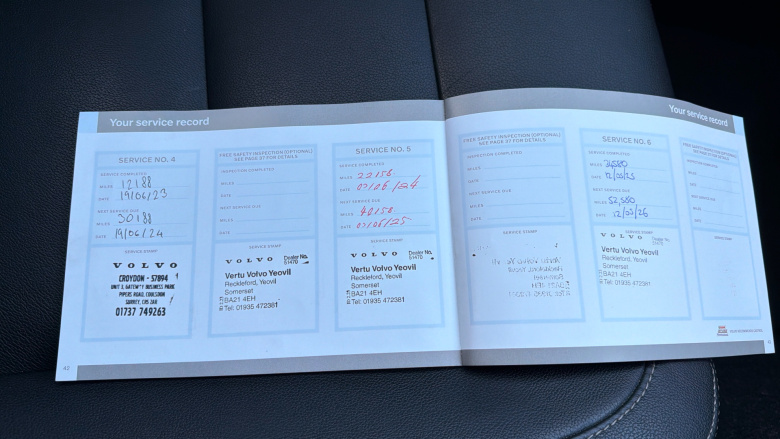 Your service record
SERVICE NO. 4
SERVICE COMPLETED
MILES 12188
DATE 19/06/23
NEXT SERVICE DUE
MILES 30188
DATE 19/06/24
SERVICE STAMP
VOLVO
CROYDON - 57894
UNIT 3, GATEWAY BUSINESS PARK
PIPERS ROAD, COULSDON
SURREY, CR5 2AR
01737 749263
42
FREE SAFETY INSPECTION (OPTIONAL)
SEE PAGE 37 FOR DETAILS
INSPECTION COMPLETED
MILES
DATE
NEXT SERVICE DUE
MILES
DATE
SERVICE STAMP
VOLVO Dealer No.
51470
Vertu Volvo Yeovil
Reckleford, Yeovil
Somerset
BA21 4EH
Tel: 01935 472381
SERVICE NO. 5
SERVICE COMPLETED
MILES 22156
DATE 07/06/24
NEXT SERVICE DUE
MILES 40156
DATE 07/06/25
SERVICE STAMP
VOLVO Dealer No.
51470
Vertu Volvo Yeovil
Reckleford, Yeovil
Somerset
BA21 4EH
Tel: 01935 472381
Your service record
FREE SAFETY INSPECTION (OPTIONAL)
SEE PAGE 37 FOR DETAILS
INSPECTION COMPLETED
MILES
DATE
NEXT SERVICE DUE
MILES
DATE
SERVICE STAMP
SERVICE NO. 6
SERVICE COMPLETED
MILES
DATE 12/03/25
NEXT SERVICE DUE
MILES 52,580
DATE 12/03/26
SERVICE STAMP
VOLVO Dealer No.
Vertu Volvo Yeovil
Reckleford, Yeovil
Somerset
BA21 4EH
Tel: 01935 472381
FREE SAFETY INSPECTION (OPTIONAL)
SEE PAGE 37 FOR DETAILS
INSPECTION COMPLETED
MILES
DATE
NEXT SERVICE DUE
MILES
DATE
SERVICE STAMP